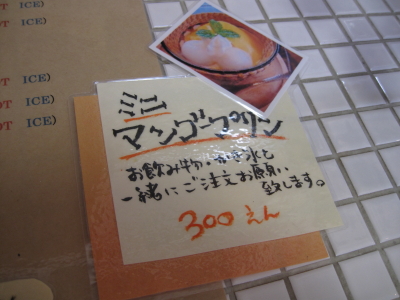 ICE)
ICE)
OT ICE)
OT ICE)
ミニ
マンゴープリン
お飲み物・かき氷と
一緒にご注文お願い
致します。
300えん